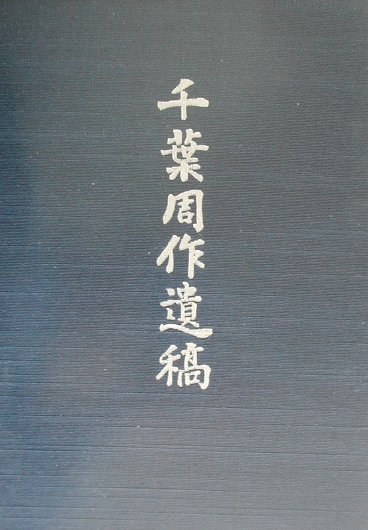 千葉周作遺稿